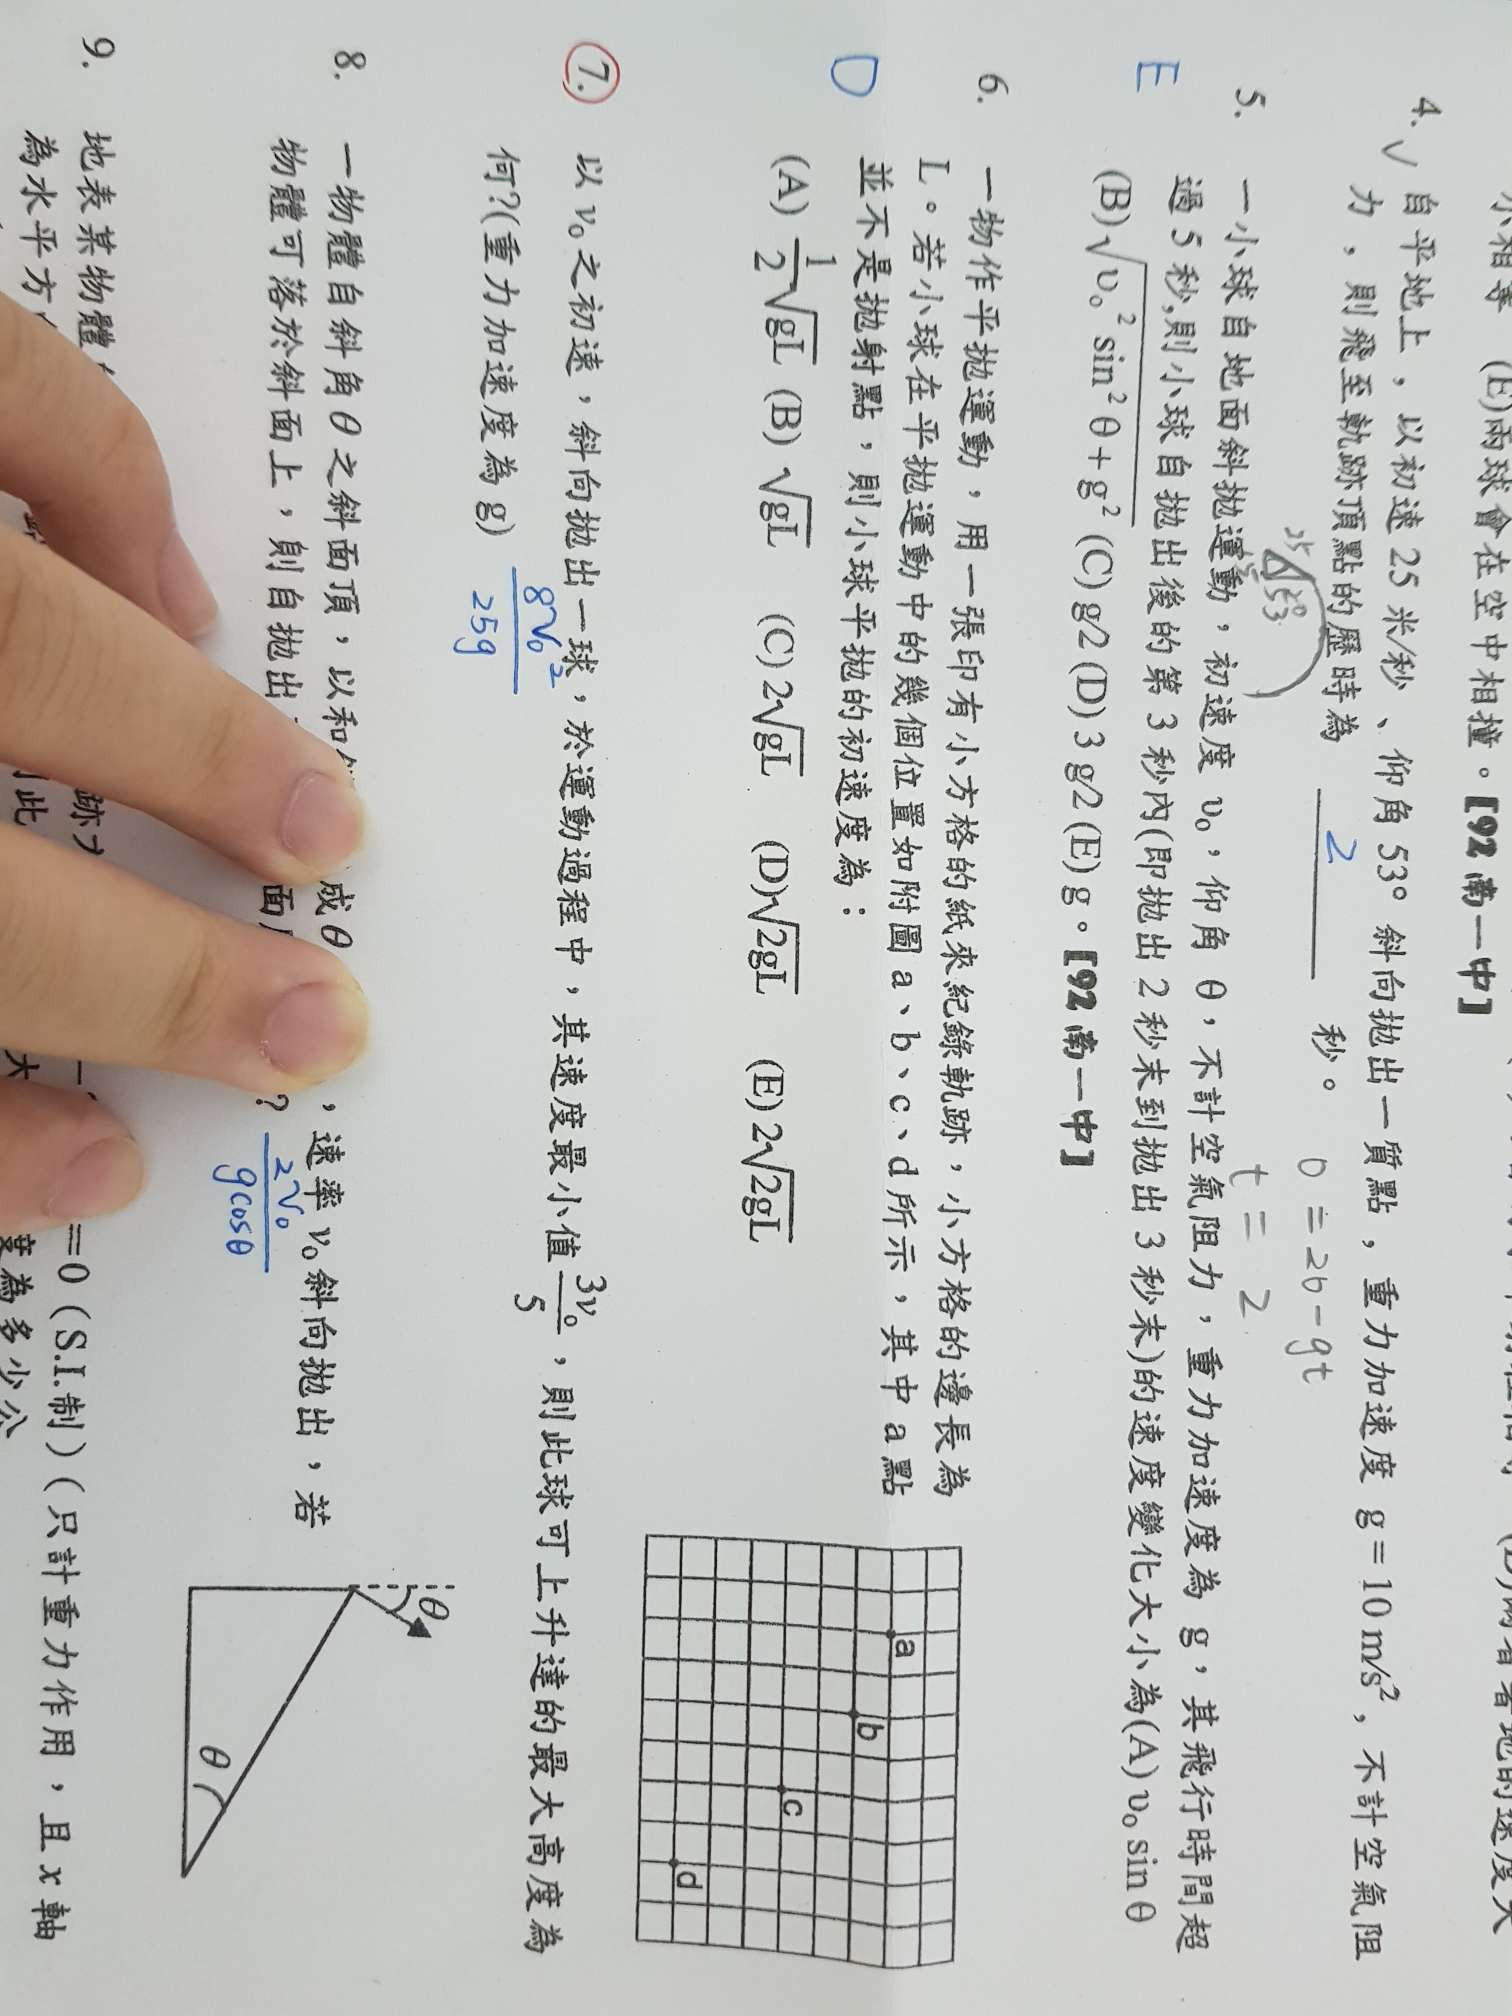 小相等 (E)兩球會在空中相撞。【92 南一中】
4. ✓ 自平地上,以初速 25 米/秒、仰角 53° 斜向拋出一質點,重力加速度 g = 10 m/s²,不計空氣阻
力,則飛至軌跡頂點的歷時為 2 秒。
0 = 20 - gt
t = 2
25 20 53°
5. 一小球自地面斜拋運動,初速度 υ₀,仰角 θ,不計空氣阻力,重力加速度為 g,其飛行時間超
E 過 5 秒,則小球自拋出後的第 3 秒內(即拋出 2 秒末到拋出 3 秒末)的速度變化大小為(A) υ₀ sin θ
(B) √(υ₀² sin² θ + g²) (C) g/2 (D) 3 g/2 (E) g。【92 南一中】
6. 一物作平拋運動,用一張印有小方格的紙來紀錄軌跡,小方格的邊長為
L。若小球在平拋運動中的幾個位置如附圖 a、b、c、d 所示,其中 a 點
D 並不是拋射點,則小球平拋的初速度為:
(A) 1/2 √gL (B) √gL (C) 2√gL (D) √2gL (E) 2√2gL
a
b
c
d
7. 以 v₀ 之初速,斜向拋出一球,於運動過程中,其速度最小值 3v₀/5,則此球可上升達的最大高度為
何?(重力加速度為 g) 8v₀²/25g
8. 一物體自斜角 θ 之斜面頂,以和 成 θ ,速率 v₀ 斜向拋出,若
物體可落於斜面上,則自拋出 面 ? 2v₀/gcosθ
θ
θ
9. 地表某物體 =0 (S.I.制)(只計重力作用,且 x 軸
為水平方 此 大 度為多少公